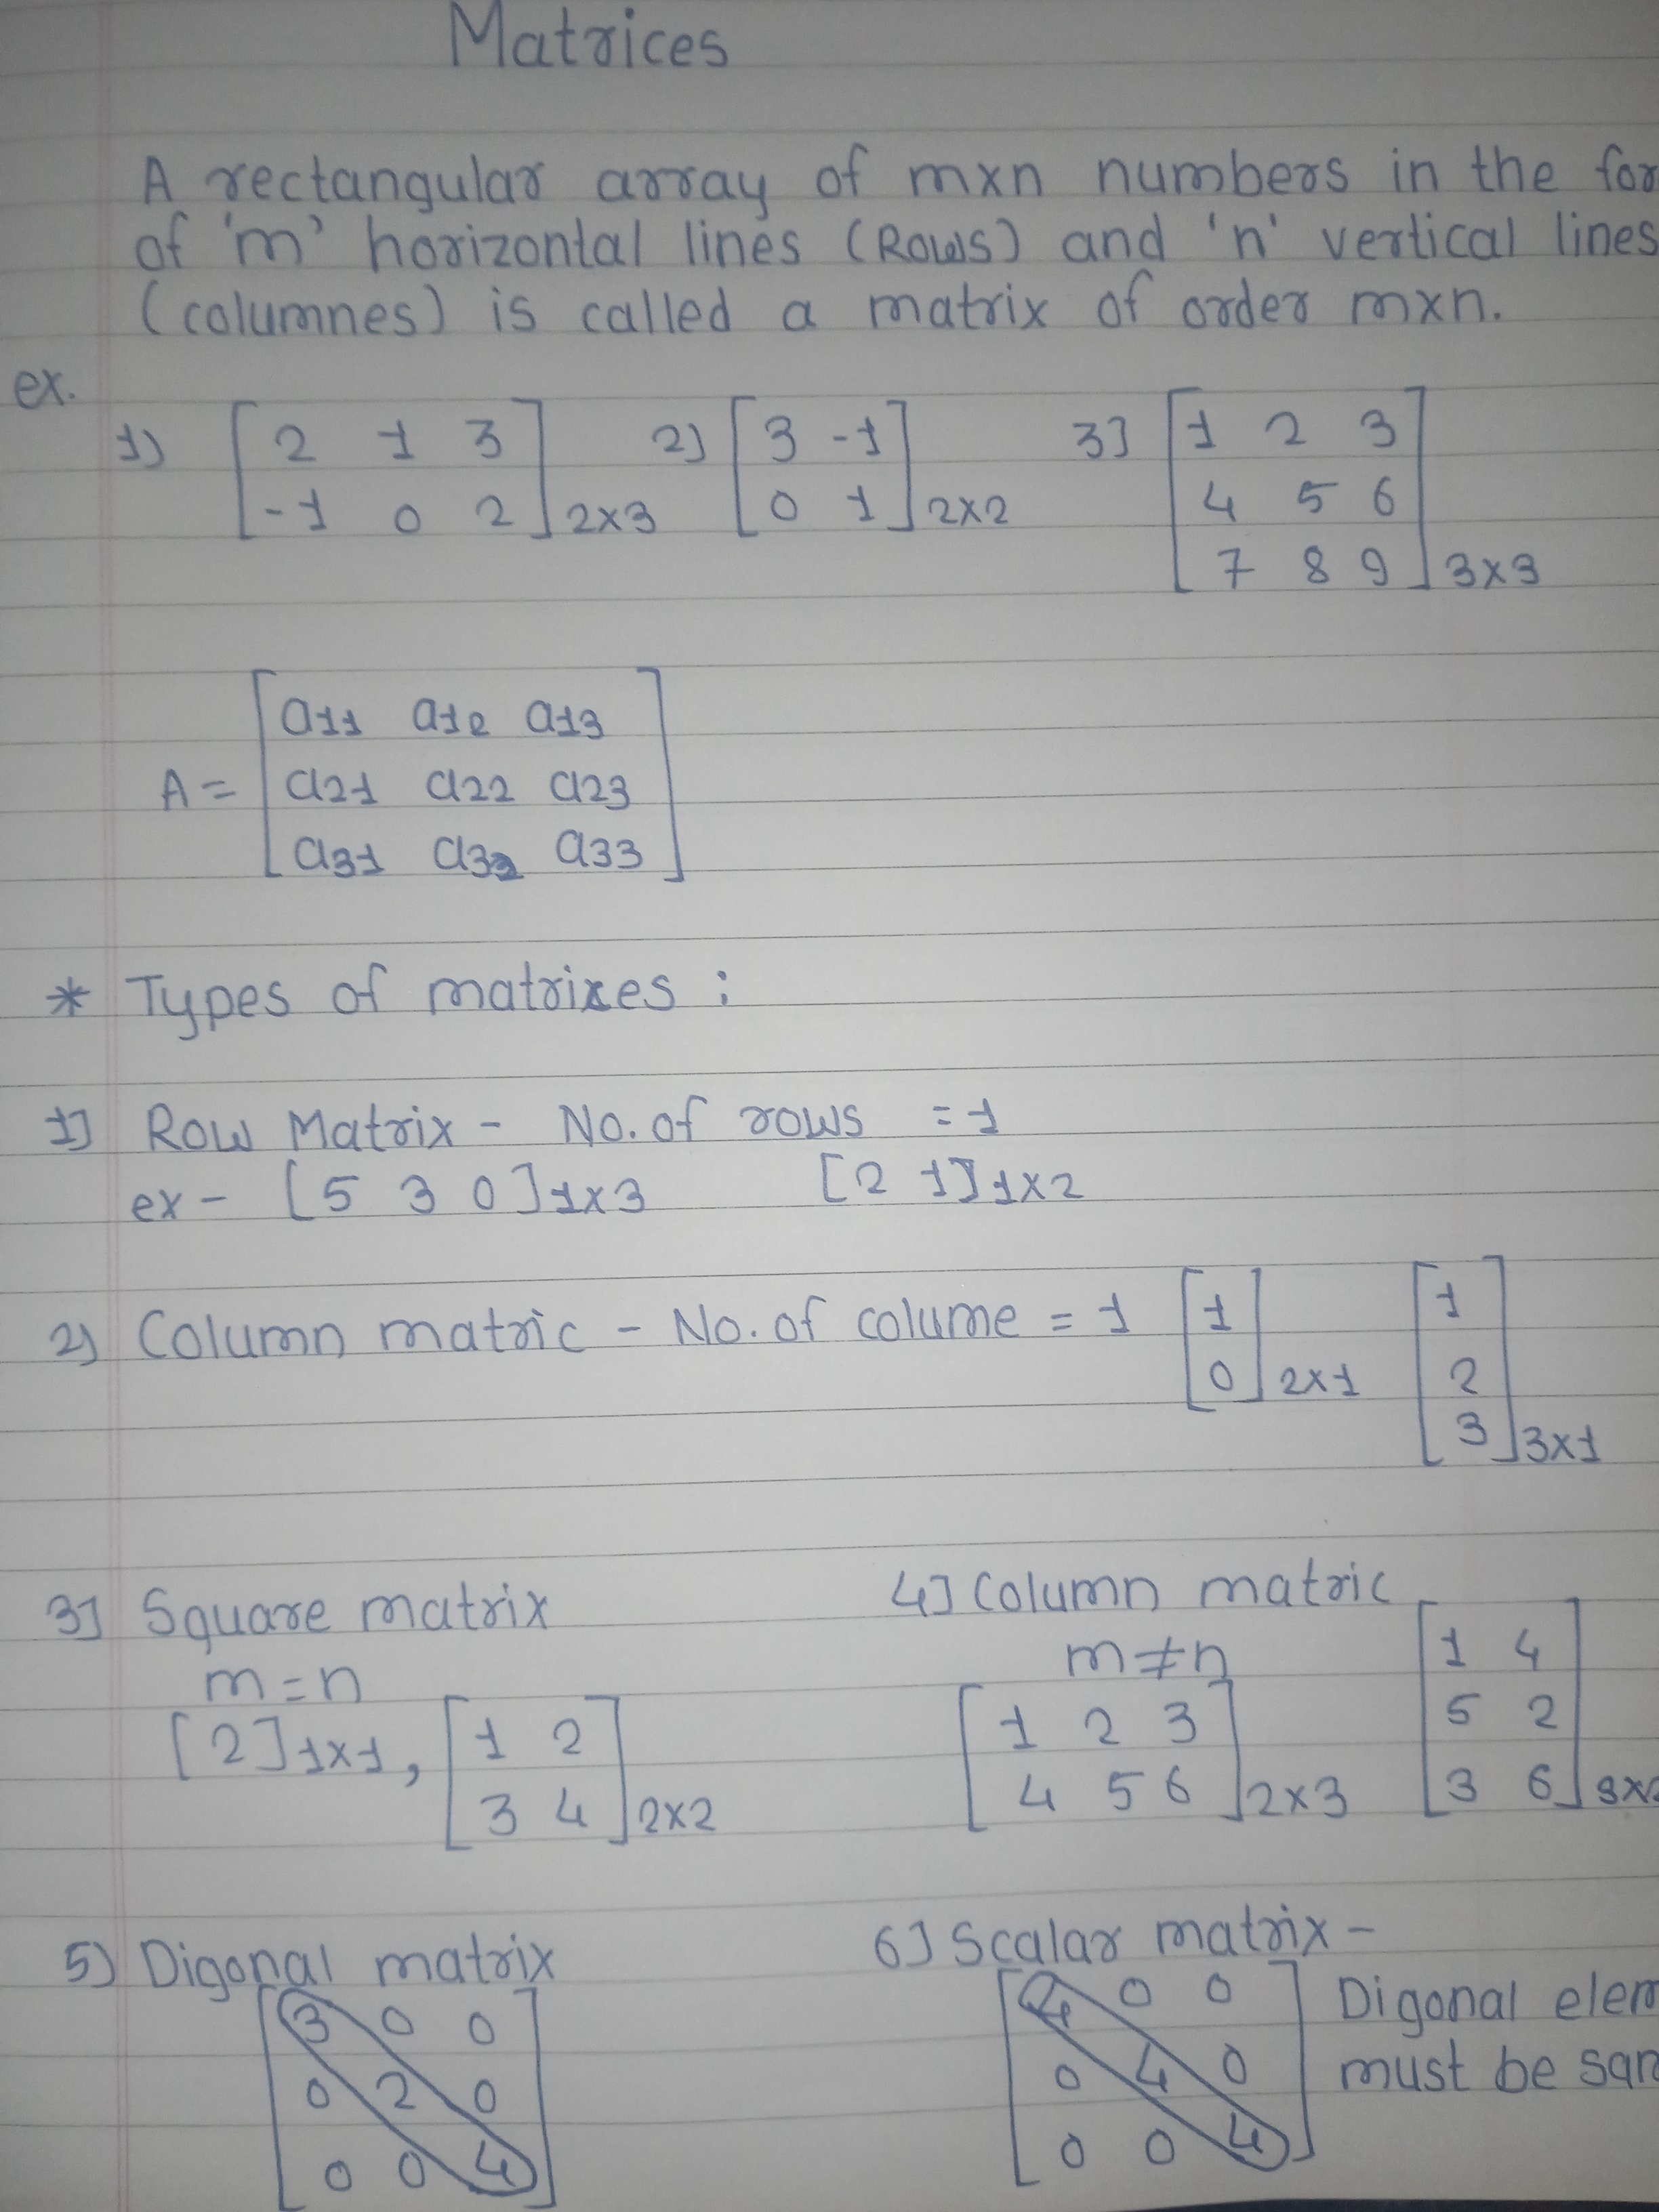 Matrices
A rectangular array of mxn numbers in the for
of 'm' horizontal lines (Rows) and 'n' vertical lines
(columnes) is called a matrix of order mxn.
ex.
1) [2 1 3 2) [3 -1 3] [1 2 3
-1 0 2] 2x3 0 1] 2x2 4 5 6
7 8 9] 3x3
[a11 a12 a13
A = a21 a22 a23
a31 a32 a33]
* Types of matrixes :
1] Row Matrix - No. of rows = 1
ex - [5 3 0] 1x3 [2 1] 1x2
2) Column matric - No. of colume = 1 [1 [1
0] 2x1 2
3] 3x1
3] Square matrix
m = n
[2] 1x1, [1 2
3 4] 2x2
4] Column matric
m ≠ n
[1 2 3 [1 4
4 5 6] 2x3 5 2
3 6] 3x2
5) Digonal matrix
[3 0 0
0 2 0
0 0 4]
6] Scalar matrix -
[4 0 0 Digonal elem
0 4 0 must be sam
0 0 4]